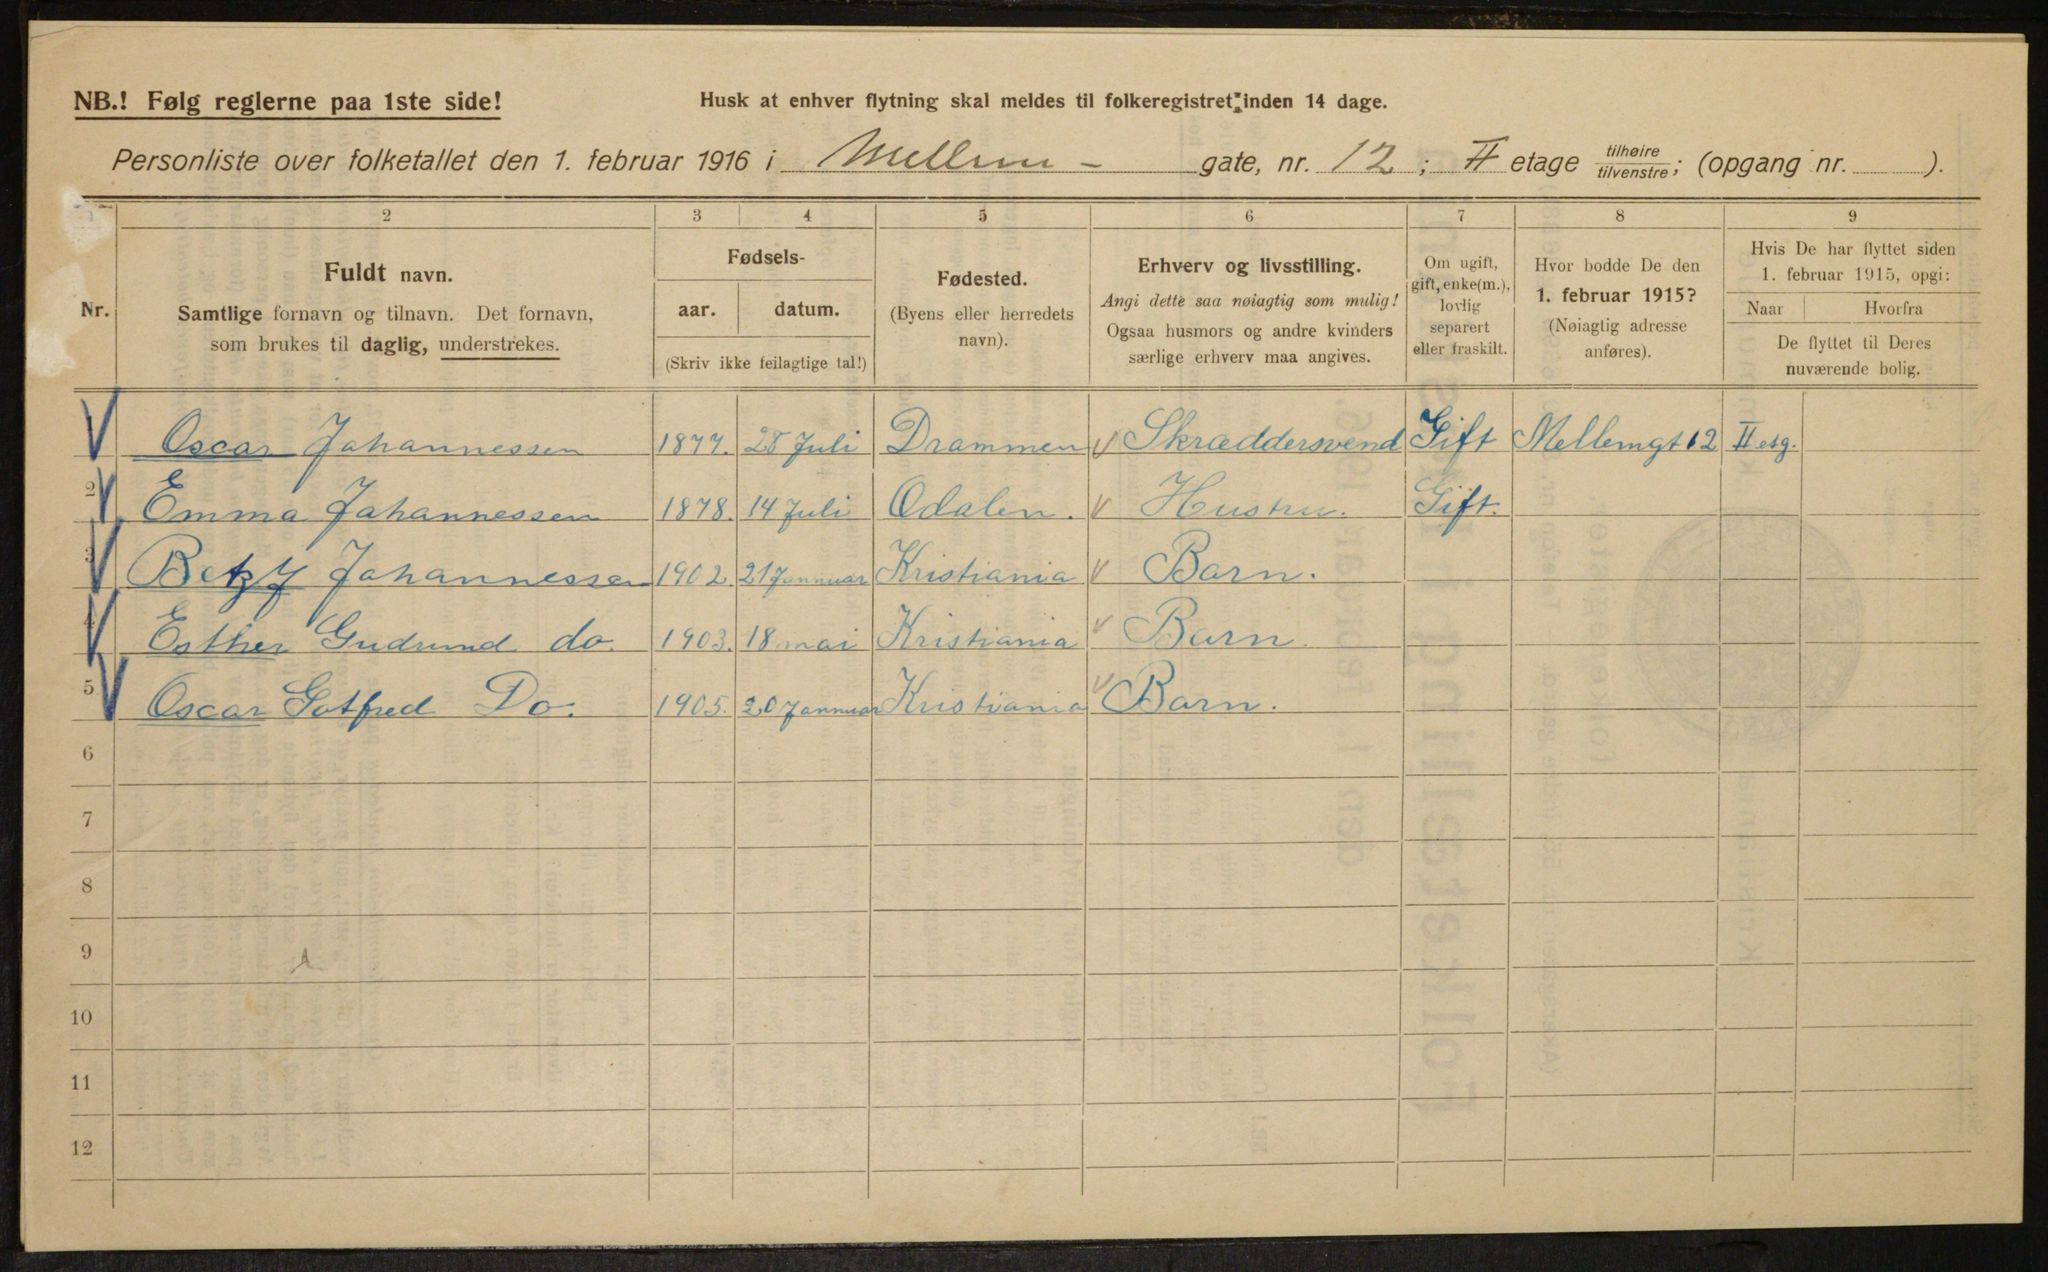 NB.! Følg reglerne paa 1ste side!
Husk at enhver flytning skal meldes til folkeregistret inden 14 dage.
Personliste over folketallet den 1. februar 1916 i Mellem - gate, nr. 12; II etage tilhøire tilvenstre; (opgang nr. ).
2 3 4 5 6 7 8 9
Nr.
Fuldt navn.
Samtlige fornavn og tilnavn. Det fornavn,
som brukes til daglig, understrekes.
Fødsels-
aar. datum.
(Skriv ikke feilagtige tal!)
Fødested.
(Byens eller herredets
navn).
Erhverv og livsstilling.
Angi dette saa nøiagtig som mulig!
Ogsaa husmors og andre kvinders
særlige erhverv maa angives.
Om ugift,
gift, enke(m.),
lovlig
separert
eller fraskilt.
Hvor bodde De den
1. februar 1915?
(Nøiagtig adresse
anføres).
Hvis De har flyttet siden
1. februar 1915, opgi:
Naar Hvorfra
De flyttet til Deres
nuværende bolig.
Oscar Johannessen 1877. 28 Juli Drammen Skræddersvend Gift Mellemgt 12 II etg.
2 Emma Johannessen 1878. 14 Juli Odalen. Hustru. Gift.
3 Betzy Johannessen 1902. 21 Jannuar Kristiania Barn.
4 Esther Gudrund do. 1903. 18 mai Kristiania Barn
5 Oscar Gotfred Do. 1905. 20 Jannuar Kristiania Barn.
6
7
8
9
10
11
12